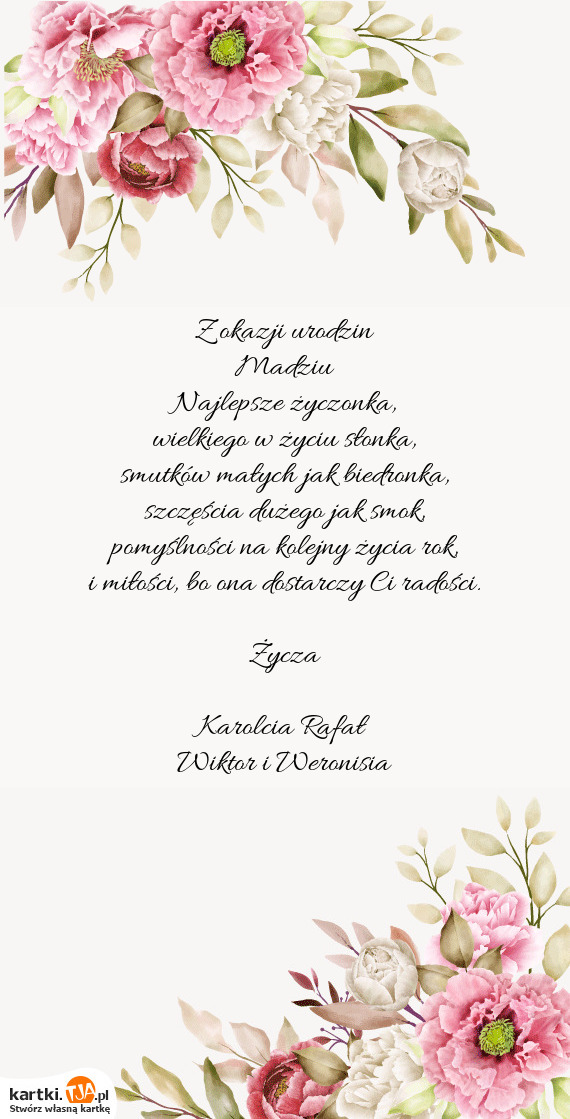 Z okazji urodzin
Madziu
Najlepsze życzonka,
wielkiego w życiu słonka,
smutków małych jak biedronka,
szczęścia dużego jak smok,
pomyślności na kolejny życia rok,
i miłości, bo ona dostarczy Ci radości.
Życza
Karolcia Rafał
Wiktor i Weronisia
kartki.TJA.pl
Stwórz własną kartkę